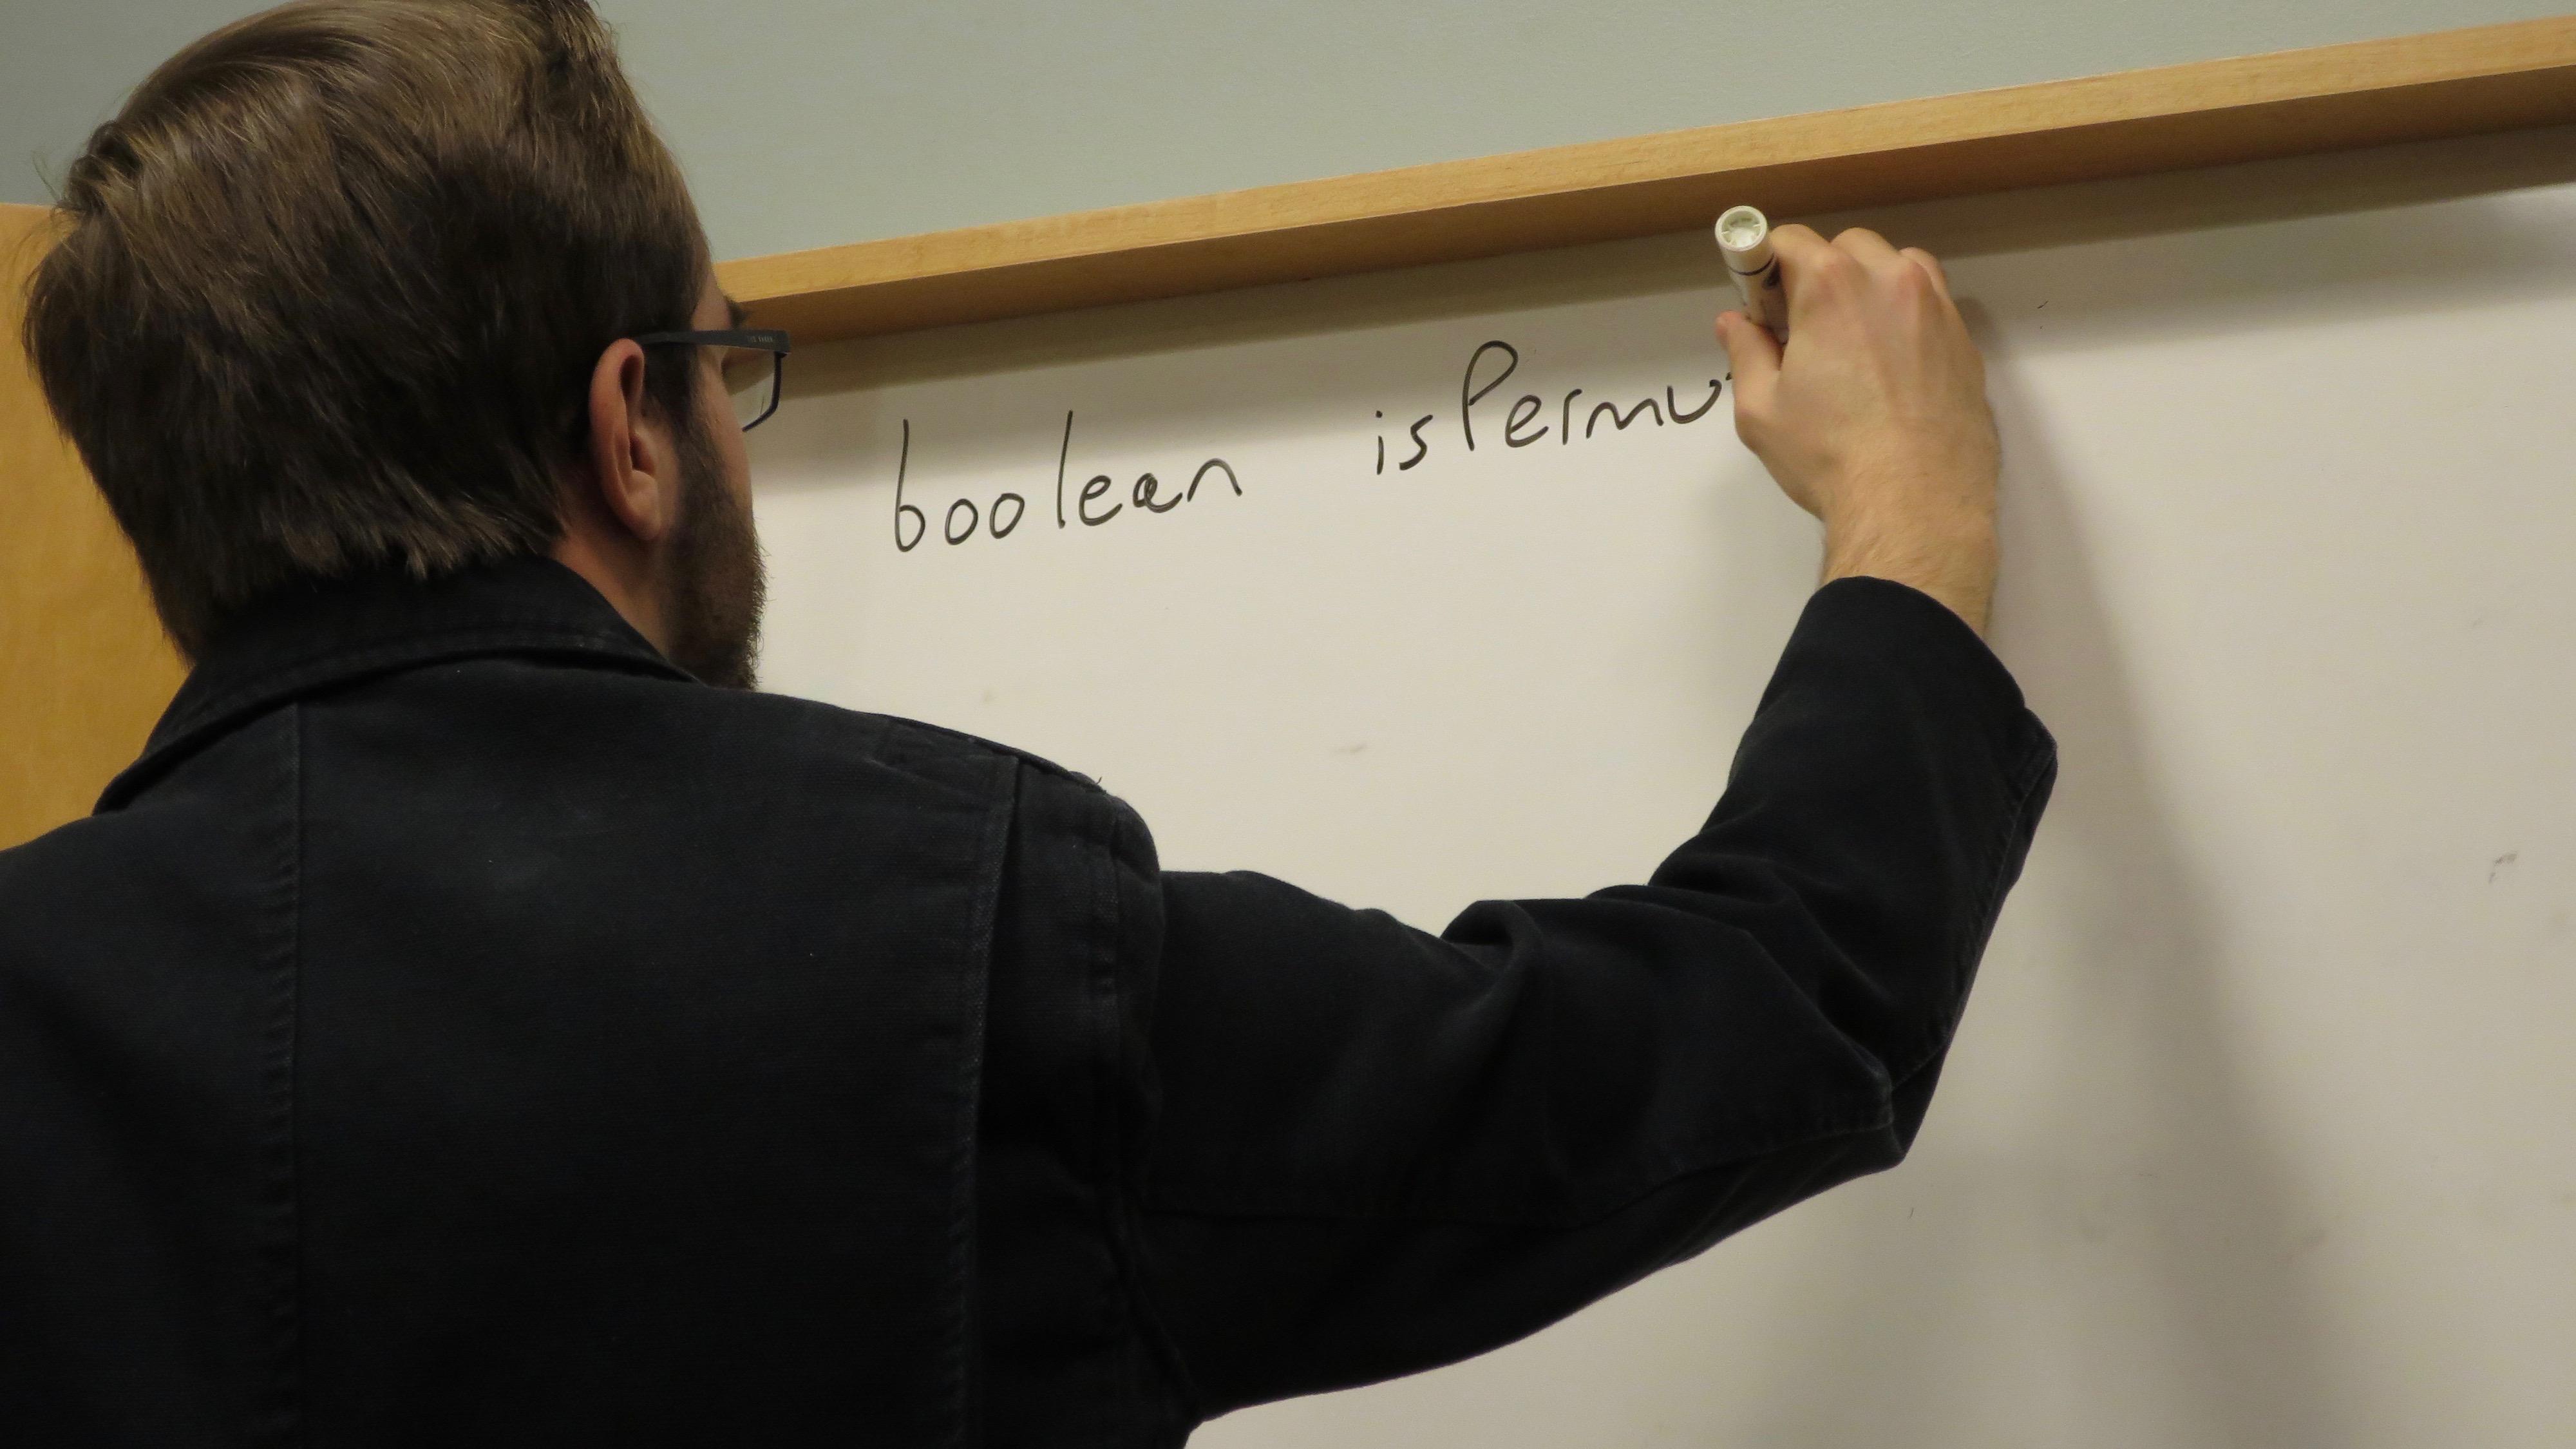 boolean isPermu